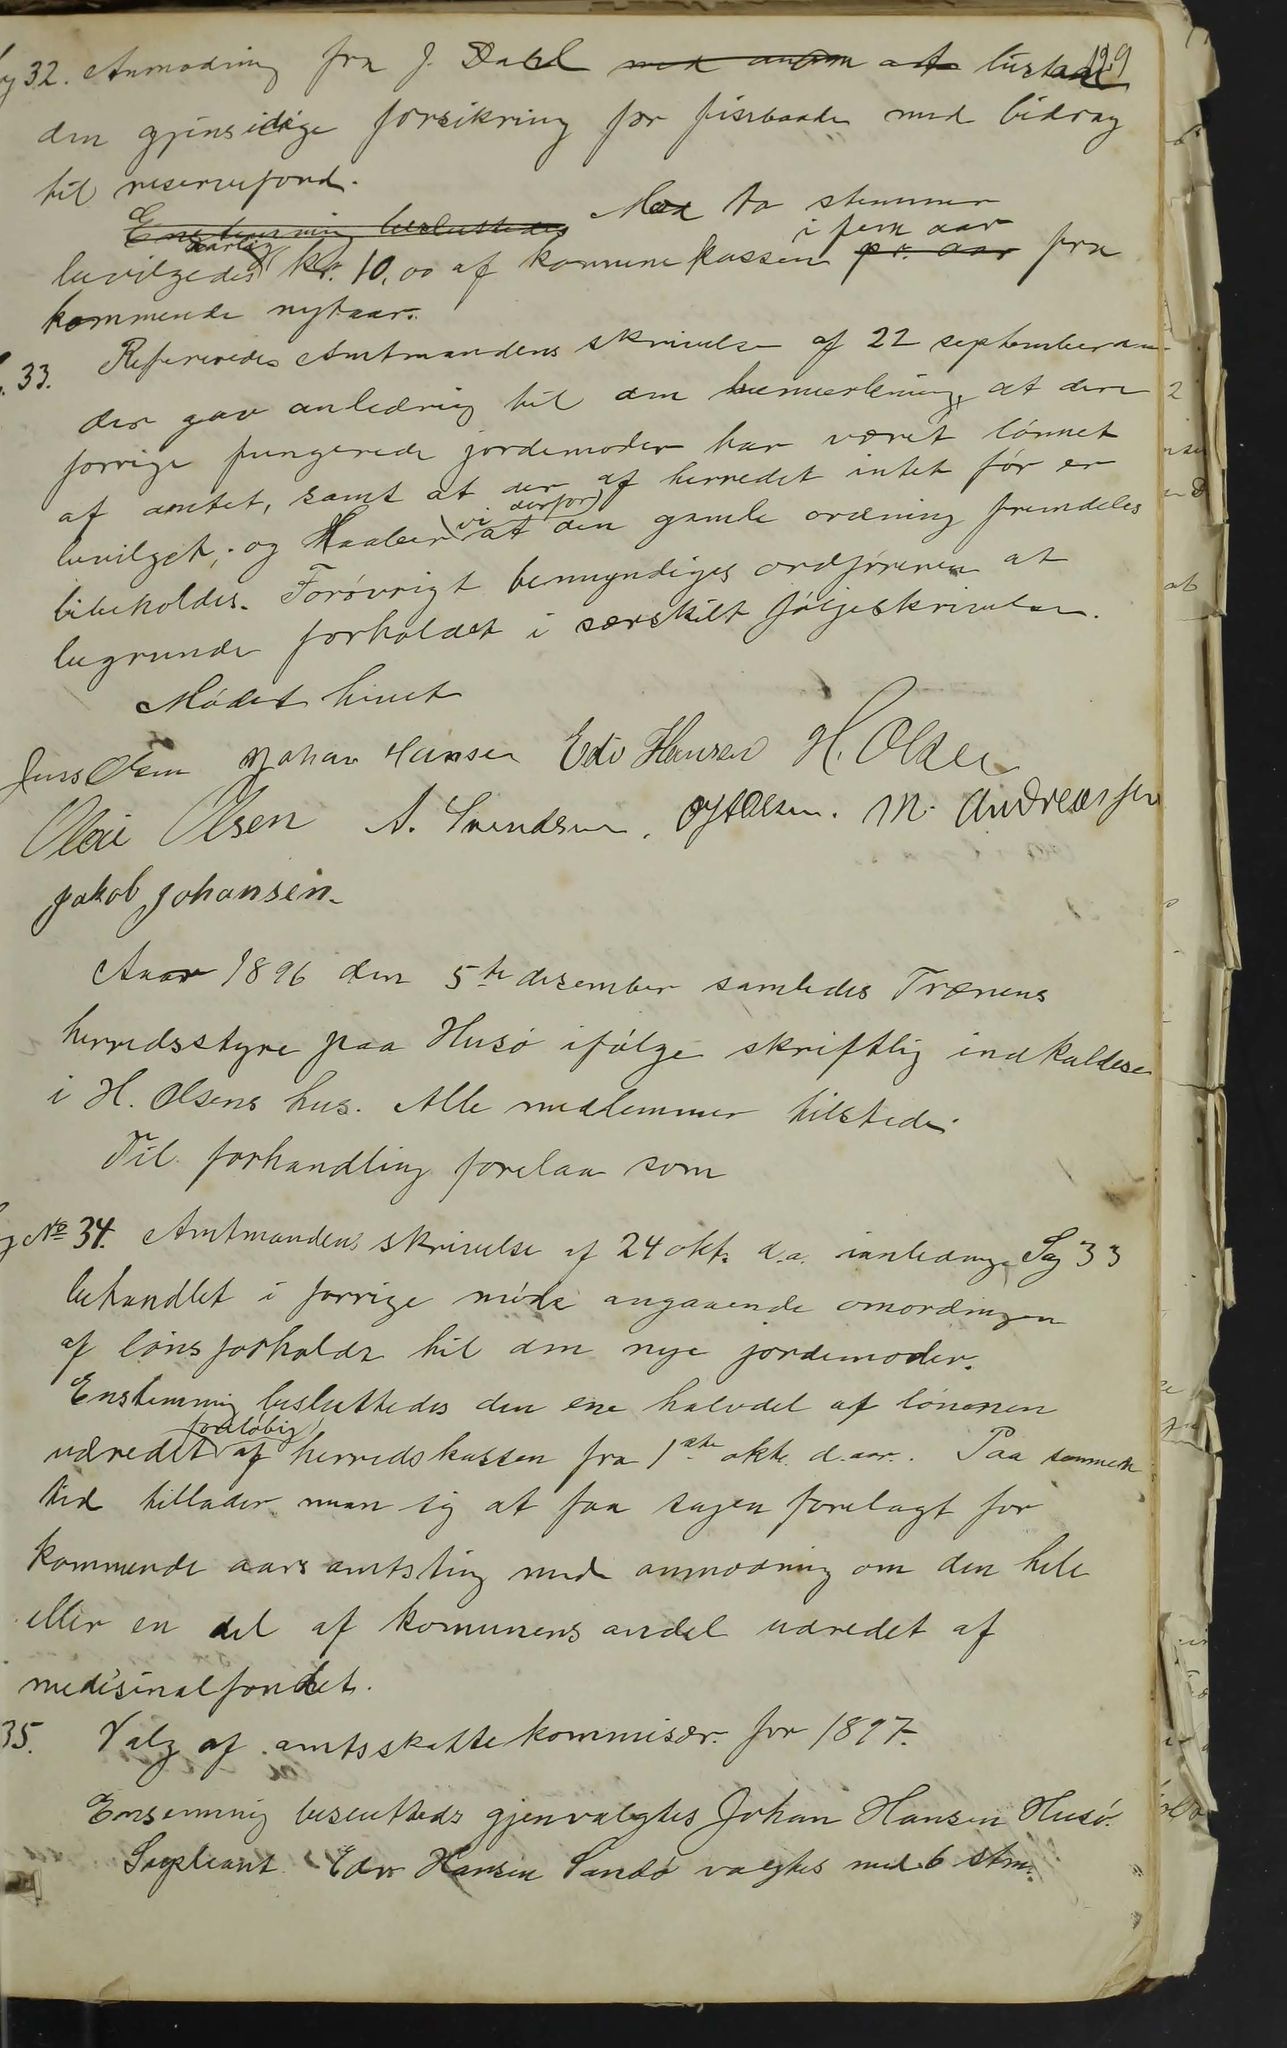 129
32. Anmodning fra J. Dahl med anden at tilstaae
den gjensidige forsikring for fiskebaade med bidrag
til reservefond.
Enstemmig besluttedes Med to stemmer
bevilgedes aarlig kr. 10,00 af kommunekassen i fem aar pr. aar fra
kommende nytaar.
33. Refereredes Amtmandens skrivelse af 22 september d.a.
der gav anledning til den bemerkning, at den
forrige fungerede jordemoder har været lønnet
af amtet, samt at der af herredet intet før er
bevilget, og Haaber vi derfor at den gamle ordning fremdeles
bibeholdes. Forøvrigt bemyndiges ordføreren at
begrunde forholdet i særskilt følgeskrivelse.
Mødet hevet
Jens Olsen Johan Hansen Edv Hansen H. Olsen
Olai Olsen A. Svendsen. Olsen. M. Andreassen
Jakob Johansen.
Aar 1896 den 5te desember samledes Trænens
herredsstyre paa Husø ifølge skriftlig indkaldese
i H. Olsens hus. Alle medlemmer tilstede.
Til forhandling forelaa som
No 34. Amtmandens skrivelse af 24 okt. d.a. ianledning Sag 33
behandlet i forrige møde angaaende omordningen
af lønsforholde til den nye jordemoder.
Enstemmig besluttedes den ene halvdel af lønnen
udredet foreløbig af herredskassen fra 1ste okt. d. aar. Paa samme
tid tillader man sig at faa sagen forelagt for
kommende aars amtsting med anmodning om den hele
eller en del af komunens andel udredet af
medisinalfondet.
35. Valg af amtsskattekommisær for 1897.
Ensemmig besluttedes gjenvalgtes Johan Hansen Husø.
Supleant Edv Hansen Sandø valgtes med 6 stm.